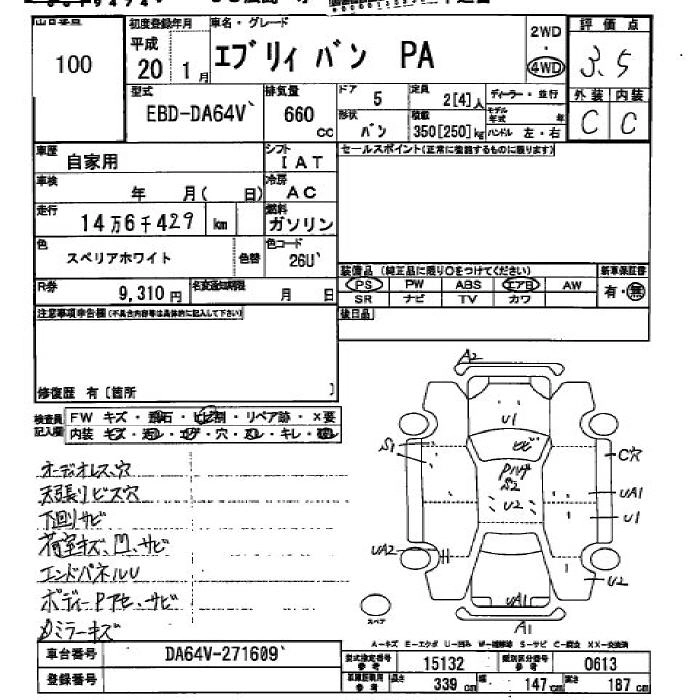 初度登録年月 車名・グレード 2WD 評価点
100 平成 20 1月 エブリィ バン PA 4WD 3.5
型式 排気量 ドア 定員 ディーラー・並行 外装 内装
EBD-DA64V 660 cc 5 2[4]人 モデル年式 年 C C
形状 バン 積載 350[250]kg ハンドル 左・右
車歴 自家用 シフト IAT セールスポイント(正常に機能するものに限ります)
車検 年 月( 日) 冷房 AC
走行 14万6千429 km 燃料 ガソリン
色 スペリアホワイト 色替 色コード 26U
装備品 (純正品に限り○をつけてください) 新車保証書
R券 9,310円 名変通知期限 月 日 PS PW ABS エアB AW 有・無
SR ナビ TV カワ
注意事項申告欄(不具合内容等は具体的に記入して下さい) 後日品
修復歴 有〔箇所 〕
検査員記入欄 FW キズ・飛石・ヒビ割・リペア跡・×要
内装 キズ・汚レ・コゲ・穴・スレ・キレ・
オーディオレス穴
天張リビス穴
下回リサビ
荷室キズ、凹、サビ
エンドパネルU
ボディーPアセ、サビ
ミラーキズ
A2
U1
ヒビ
S1
C穴
Pハゲ
S2
U2
UA1
U1
UA2
U2
UA1
A1
スペア
A-キズ E-エクボ U-凹み W-補修跡 S-サビ C-腐食 XX-交換済
車台番号 DA64V-271609 型式指定番号 15132 類別区分番号 0613
登録番号 長さ 339 cm 幅 147 cm 高さ 187 cm